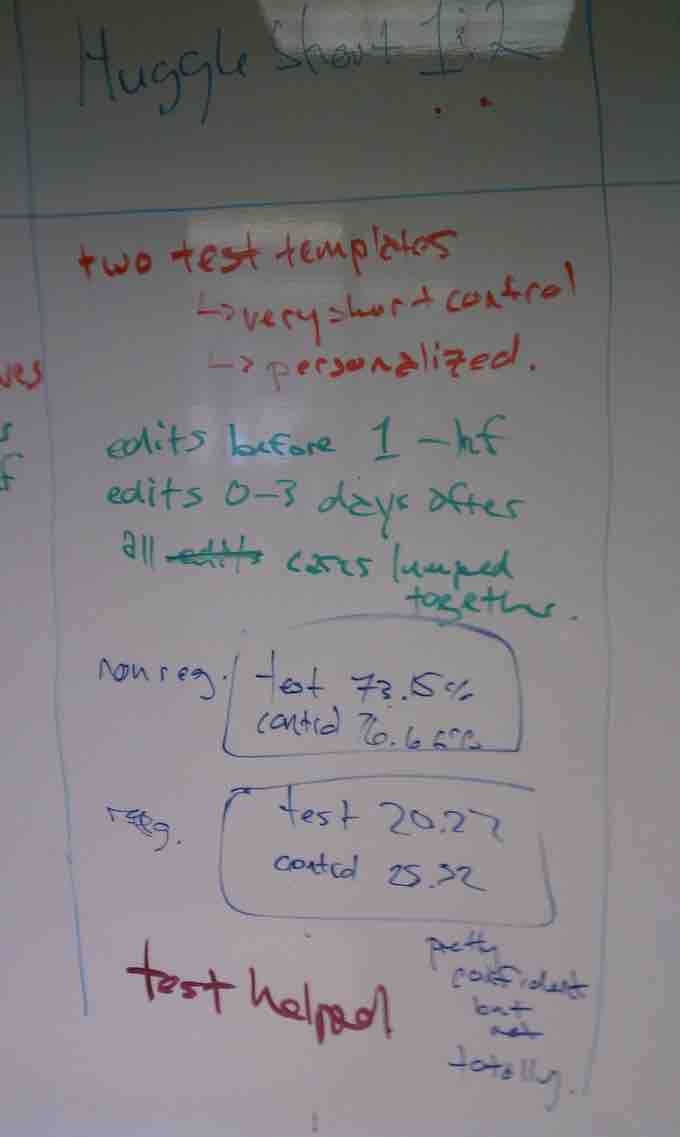 Huggle Short 1:2
two test templates
↳ very short control
↳ personalized.
edits before 1 - hf
edits 0-3 days after
all edits cases lumped
together.
non reg. test 73.15%
control 76.66%
reg. test 20.27
control 25.32
test helped
pretty
confident
but
not
totally.
ves
s
f